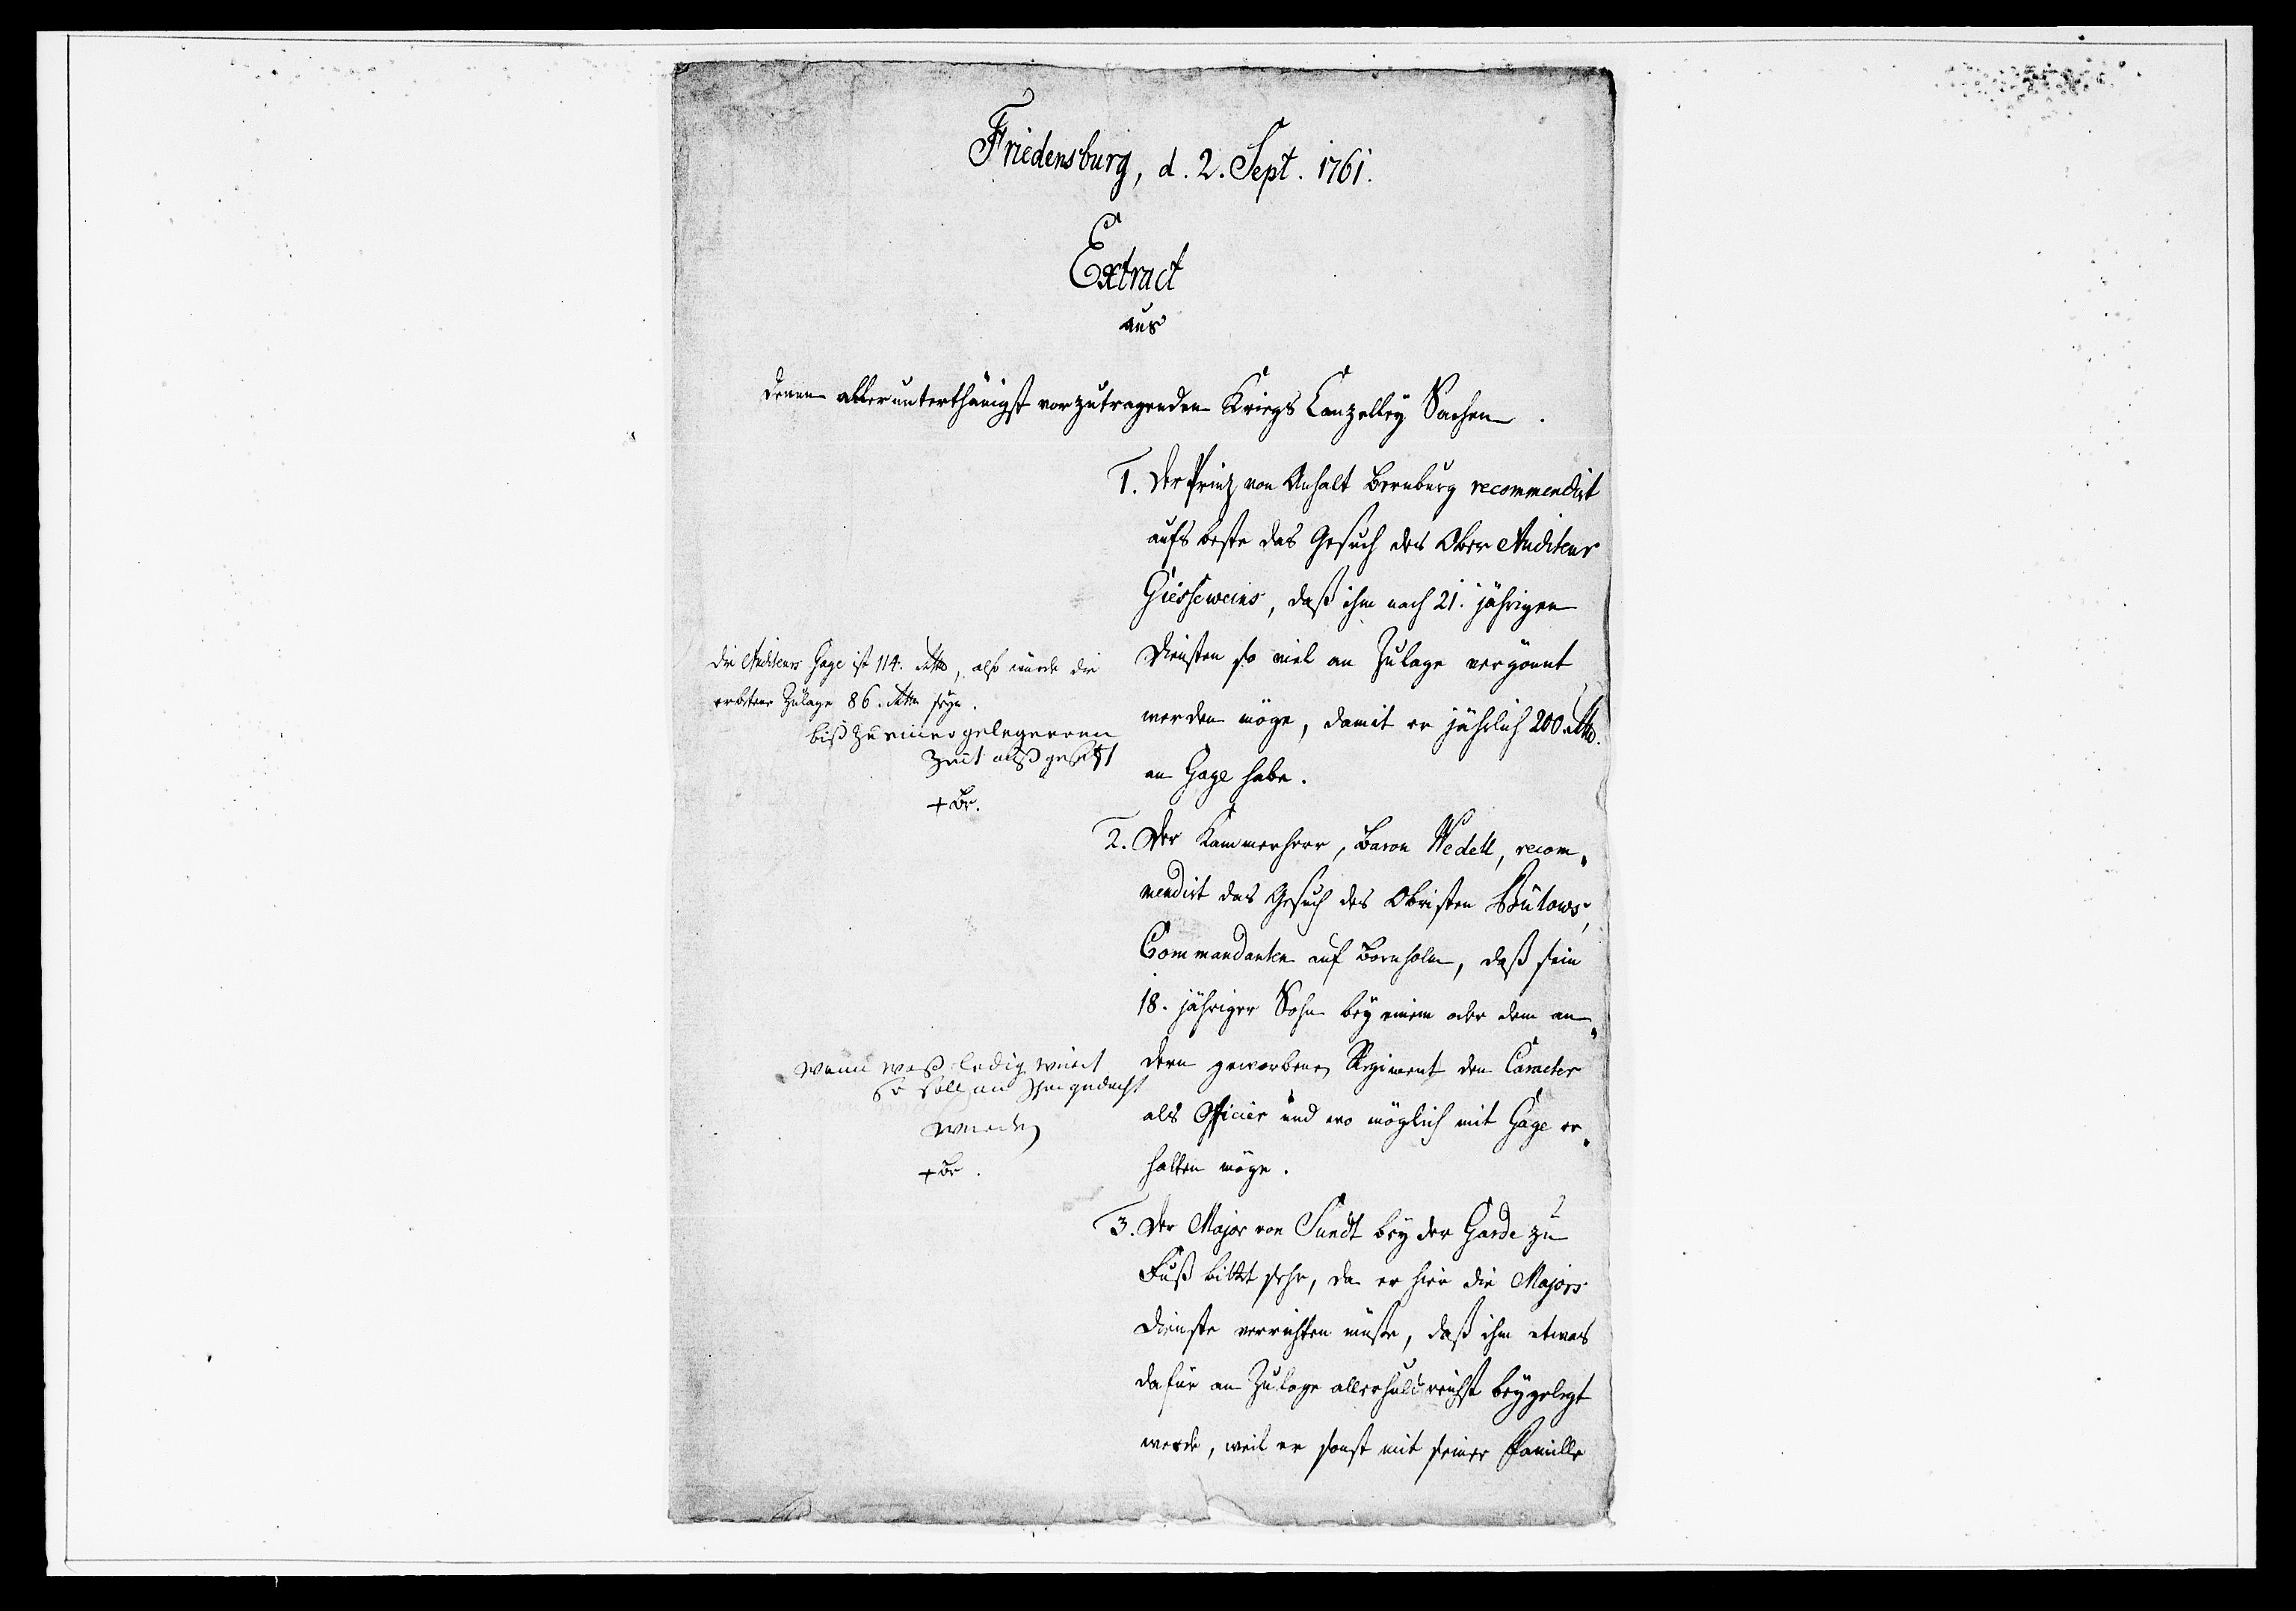 Friedensburg, d. 2. Sept. 1761.
Extract
aus
denen allerunterthänigst vorzutragenden Kriegs Canzelley Sachen.
1. Der Prinz von Anhalt Bernburg recommendirt
aufs beste das Gesuch des Ober Auditeur
Giesseweins, daß ihm nach 21. jährigen
Diensten so viel an Zulage vergönnt
werden möge, damit er jährlich 200 rthlr.
an Gage habe.
Die Auditeurs Gage ist 114. rthlr, also würde die
erbetene Zulage 86. rthlr seyn.
biß zu einer gelegeneren
Zeit auß gesetzt
+ Br.
2. Der Kammerherr, Baron Wedell, recom„
mendirt das Gesuch des Obristen Bülows,
Commandanten auf Bornholm, daß sein
18. jähriger Sohn bey einem oder dem an„
dern geworbenen Regiment den Caracter
als Officier und wo möglich mit Gage er„
halten möge.
wenn waß ledig wirdt
so soll an Ihm gedacht
werden
+ Br.
3. Der Major von Sundt bey der Garde zu
Fuß bittet sehr, da er hier die Majors
Dienste verrichten müßte, daß ihm etwas
dafür an Zulage allerhuldreichst beygelegt
werde, weil er sonst mit seiner Famille